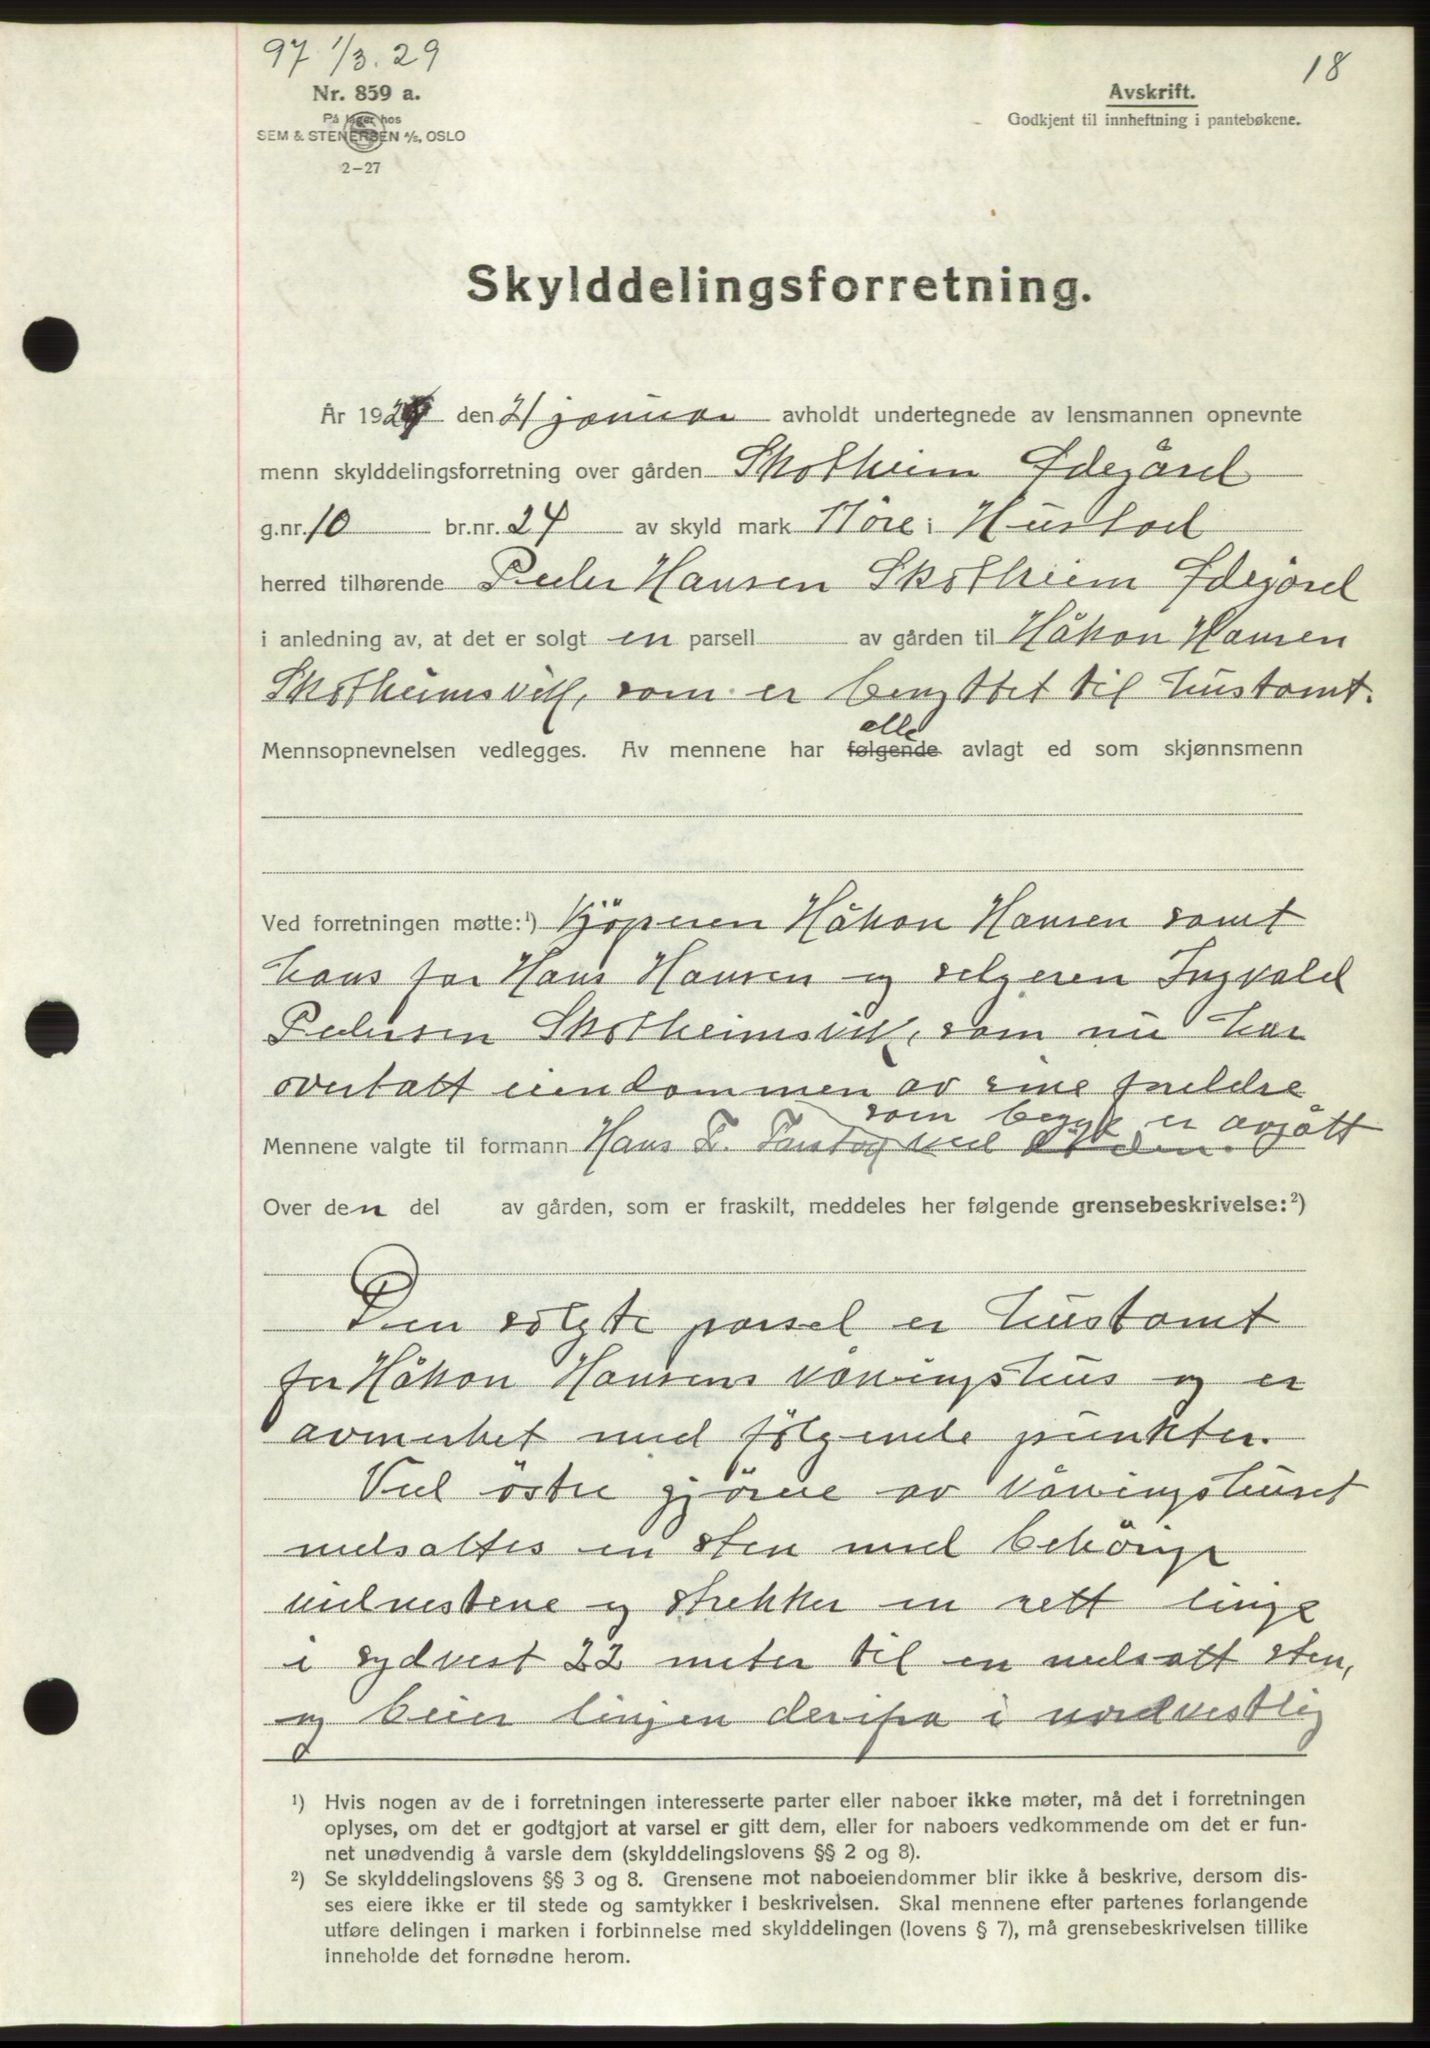 97 1/3. 29
18
Nr. 859 a.
På lager hos
SEM & STENERSEN A/S, OSLO
2-27
Avskrift.
Godkjent til innheftning i pantebøkene.
Skylddelingsforretning.
År 1929 den 21 januar avholdt undertegnede av lensmannen opnevnte
menn skylddelingsforretning over gården Skotheim Ødegård
g.nr. 10 br.nr. 24 av skyld mark 1 öre i Hustad
herred tilhørende Peder Hansen Skotheim Ødegård
i anledning av, at det er solgt en parsell av gården til Håkon Hansen
Skotheimsvik, som er benyttet til hustomt.
alle
Mennsopnevnelsen vedlegges. Av mennene har følgende avlagt ed som skjønnsmenn
Ved forretningen møtte:¹) Kjöperen Håkon Hansen samt
hans far Hans Hansen og selgeren Ingvald
Pedersen Skotheimsvik, som nu har
overtatt eiendommen av sine foreldre
som begge er avgått
Mennene valgte til formann Hans F. Tarstog ved döden.
Over den del av gården, som er fraskilt, meddeles her følgende grensebeskrivelse:²)
Den solgte parsel er hustomt
for Håkon Hansens våningshus og er
avmerket med fölgende punkter.
Ved östre hjörne av våningshuset
nedsattes en sten med behörige
vidnestene og strekker en rett linje
i sydvest 22 meter til en nedsatt sten,
og beier linjen derifra i nordvestlig
¹) Hvis nogen av de i forretningen interesserte parter eller naboer ikke møter, må det i forretningen
oplyses, om det er godtgjort at varsel er gitt dem, eller for naboers vedkommende om det er fun-
net unødvendig å varsle dem (skylddelingslovens §§ 2 og 8).
²) Se skylddelingslovens §§ 3 og 8. Grensene mot naboeiendommer blir ikke å beskrive, dersom dis-
ses eiere ikke er til stede og samtykker i beskrivelsen. Skal mennene efter partenes forlangende
utføre delingen i marken i forbinnelse med skylddelingen (lovens § 7), må grensebeskrivelsen tillike
inneholde det fornødne herom.